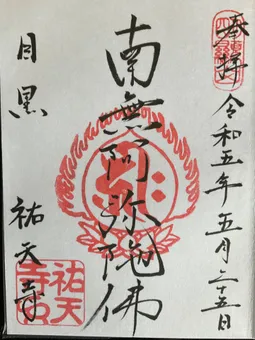 奉拝
令和五年五月二十五日
南無阿弥陀佛
目黒
祐天寺
祐天
寺印